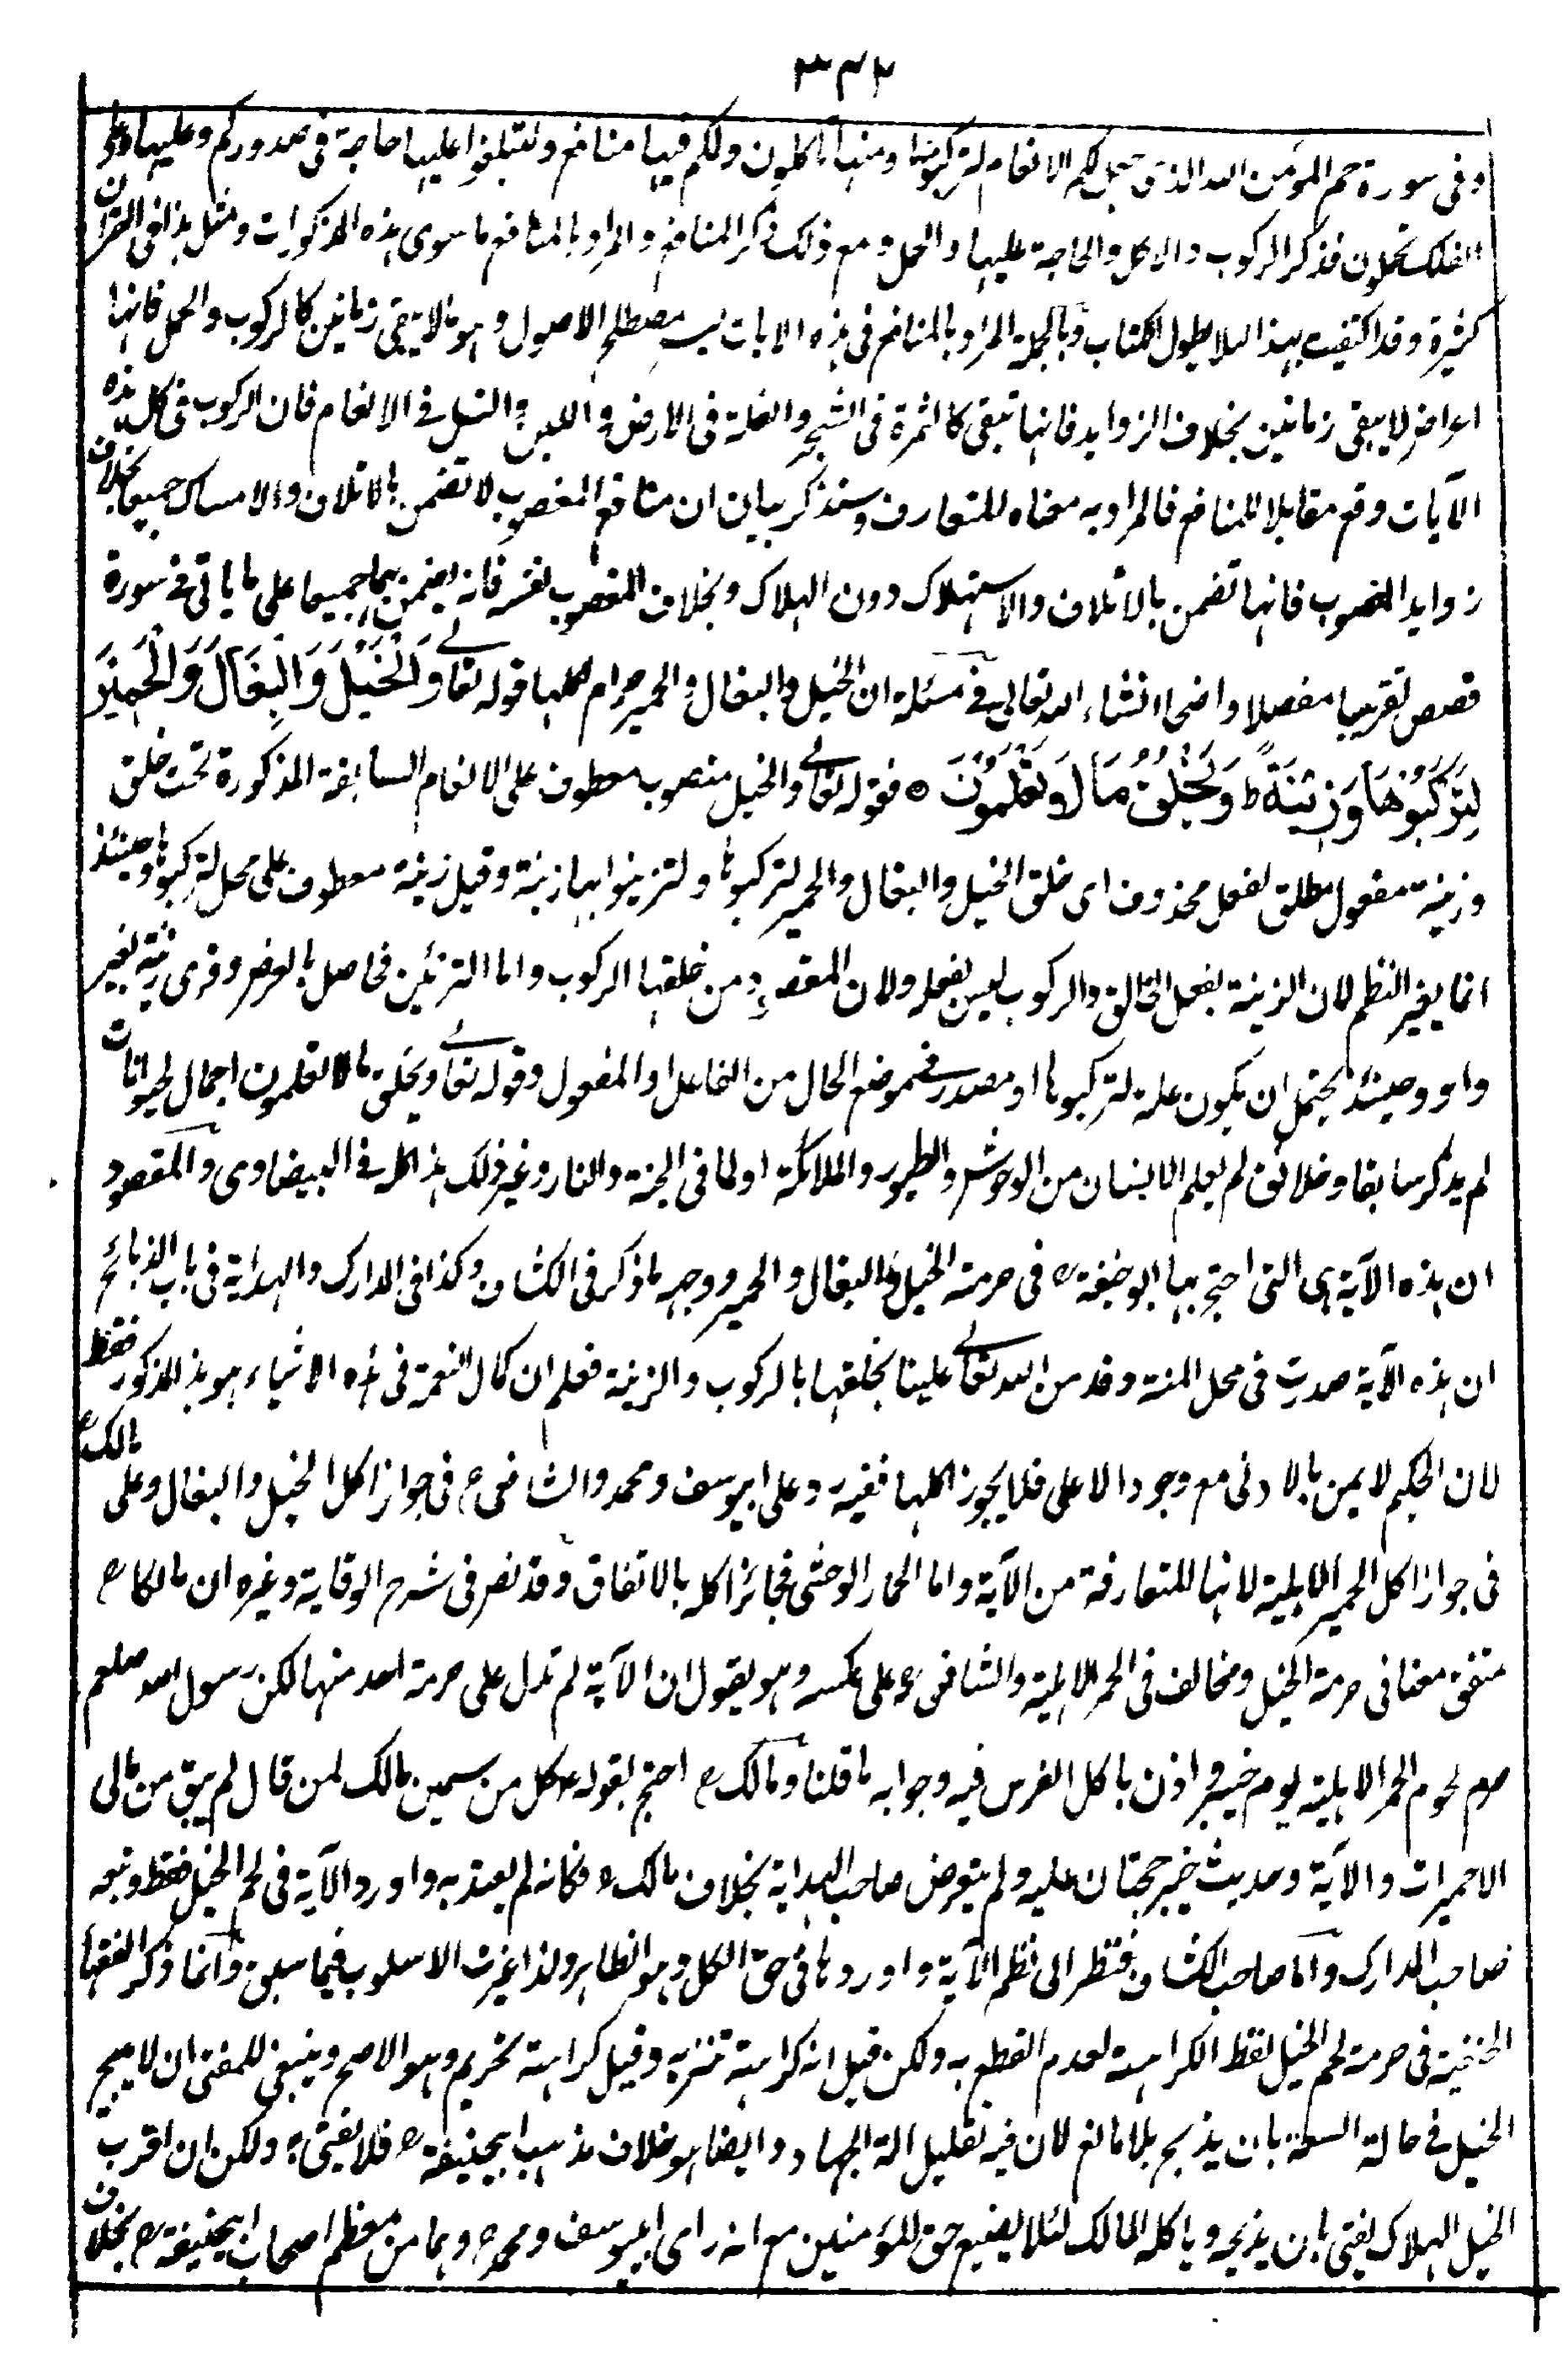 ٣٤٢
وفى سورة حم المؤمن الله الذى جعل لكم الانعام لتركبوا منها ومنها تاكلون ولكم فيها منافع ولتبلغوا عليها حاجة فى صدوركم وعليها وعلى
الفلك تحملون فذكر الركوب والاكل والحاجة عليها والحمل ومع ذلك ذكر المنافع والمراد بالمنافع ما سوى هذه المذكورات ومثل هذا فى القران
كثيرة وقد اكتفيت بهذا لئلا يطول الكتاب وبالجملة المراد بالمنافع فى هذه الايات ليس مصطلح الاصول وهو ما لا يبقى زمانين كالركوب والحمل فانها
اعراض لا يبقى زمانين بخلاف الزوايد فانها تبقى كالثمرة فى الشجر والغلة فى الارض واللبن والنسل فى الانعام فان الركوب فى كل هذه
الآيات وقع مقابلا للمنافع فالمراد به معناه المتعارف وسنذكر بيان ان منافع المغصوب لا تضمن بالاتلاف والامساك جميعا بخلاف
زوايد المغصوب فانها تضمن بالاتلاف والاستهلاك دون الهلاك وبخلاف المغصوب نفسه فانه يضمن بهما جميعا على ما ياتى فى سورة
قصص تقريبا مفصلا واضحا انشاء الله تعالى فى مسئلة ان الخيل والبغال والحمير حرام اكلها قوله تعالى وَالْخَيْلَ وَالْبِغَالَ وَالْحَمِيْرَ
لِتَرْكَبُوْهَا وَزِيْنَةً ط وَيَخْلُقُ مَا لَا تَعْلَمُوْنَ ۝ فقوله تعالى والخيل منصوب معطوف على الانعام السابقة المذكورة تحت خلق
وزينة مفعول مطلق لفعل محذوف اى خلق الخيل والبغال والحمير لتركبوها ولتزينوا بها زينة وقيل زينة معطوف على محل لتركبوها وحينئذ
انما يغير النظم لان الزينة بفعل الخالق والركوب ليس بفعله ولان المقصود من خلقها الركوب واما التزئين فحاصل بالعرض وقرى زينة بغير
واو وحينئذ يحتمل ان يكون علة لتركبوها او مصدر فى موضع الحال من الفاعل او المفعول وقوله تعالى ويخلق ما لا تعلمون اجمال لحيوانات
لم يذكر سابقا وخلائق لم يعلم الانسان من الوحوش والطيور والملائكة او لما فى الجنة والنار وغير ذلك هذا كله فى البيضاوى والمقصود
ان هذه الآية هى التى احتج بها ابو حنيفة رح فى حرمة الخيل والبغال والحمير ووجهه ما ذكر فى الكشاف وكذا فى المدارك والهداية فى باب الذبائح
ان هذه الآية صدرت فى محل المنة وقد من الله تعالى علينا بخلقها بالركوب والزينة فعلم ان كمال النعمة فى هذه الاشياء هو هذا المذكور فقط
لان الحكيم لا يمن بالادنى مع وجود الاعلى فلا يجوز اكلها ففيه رد على ابيوسف ومحمد والشافعى رح فى جواز اكل الخيل والبغال وعلى مالك رح
فى جواز اكل الحمير الاهلية لانها المتعارفة من الآية واما الحمار الوحشى فجائز اكله بالاتفاق وقد نص فى شرح الوقاية وغيره ان مالكا رح
متفق معنا فى حرمة الخيل ومخالف فى الحمر الاهلية والشافعى رح على عكسه وهو يقول ان الآية لم تدل على حرمة احد منها لكن رسول الله صلعم
حرم لحوم الحمر الاهلية يوم خيبر واذن باكل الفرس فيه وجوابه ما قلنا ومالك رح احتج بقوله ع كل من سمين مالك لمن قال لم يبق من مالى
الا حميرات والآية وحديث خيبر حجتان عليه ولم يتعرض صاحب الهداية بخلاف مالك رح فكانه لم يعتد به واورد الآية فى لحم الخيل فقط وتبعه
صاحب المدارك واما صاحب الكشاف فنظر الى نظم الآية واوردها فى حق الكل وهو الظاهر ولذا غيرت الاسلوب فيما سبق وانما ذكر الفقهاء
الحنفية فى حرمة لحم الخيل لفظ الكراهة لعدم القطع به ولكن قيل انه كراهة تنزيه وقيل كراهة تحريم وهو الاصح وينبغى للمفتى ان لا يبيح
الخيل فى حالة السعة بان يذبح بلا مانع لان فيه تقليل الة الجهاد وايضا هو خلاف مذهب ابيحنيفة رح فلا يفتى به ولكن ان اقرب
الخيل الهلاك يفتى بان يذبحه وياكله المالك لئلا يضيع حق المؤمنين مع انه راى ابيوسف ومحمد رح وهما من معظم اصحاب ابيحنيفة رح بخلاف